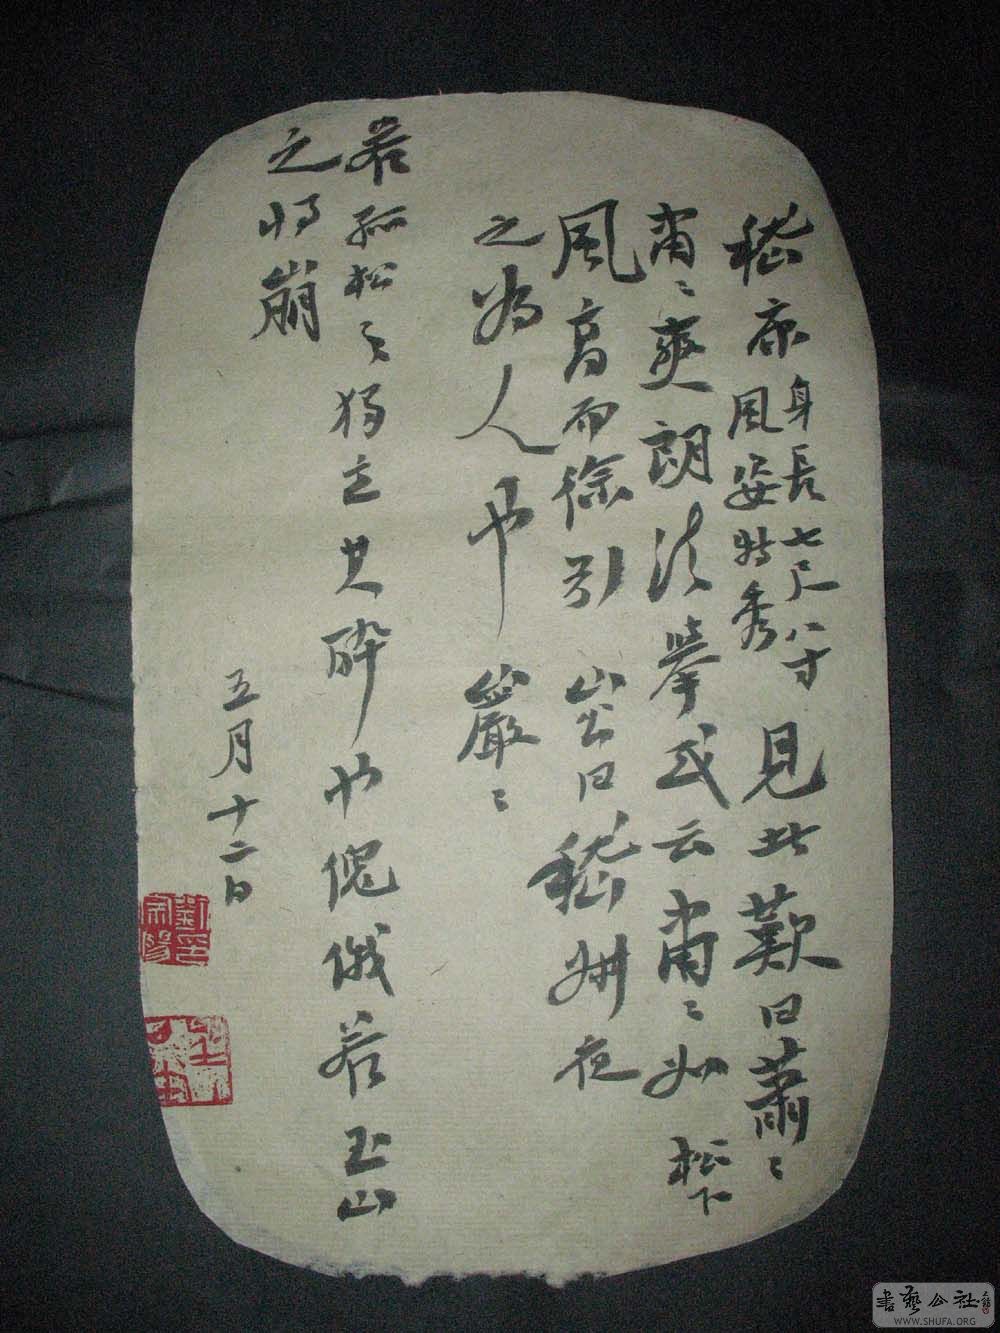 嵇康身長七尺八寸風姿特秀見此歎曰蕭〻
肅〻爽朗清舉或云肅〻如松下
風高而徐引山公曰嵇叔夜
之為人也巖〻
若孤松之獨立其醉也傀俄若玉山
之將崩
五月十二日
書藝公社
WWW.SHUFA.ORG